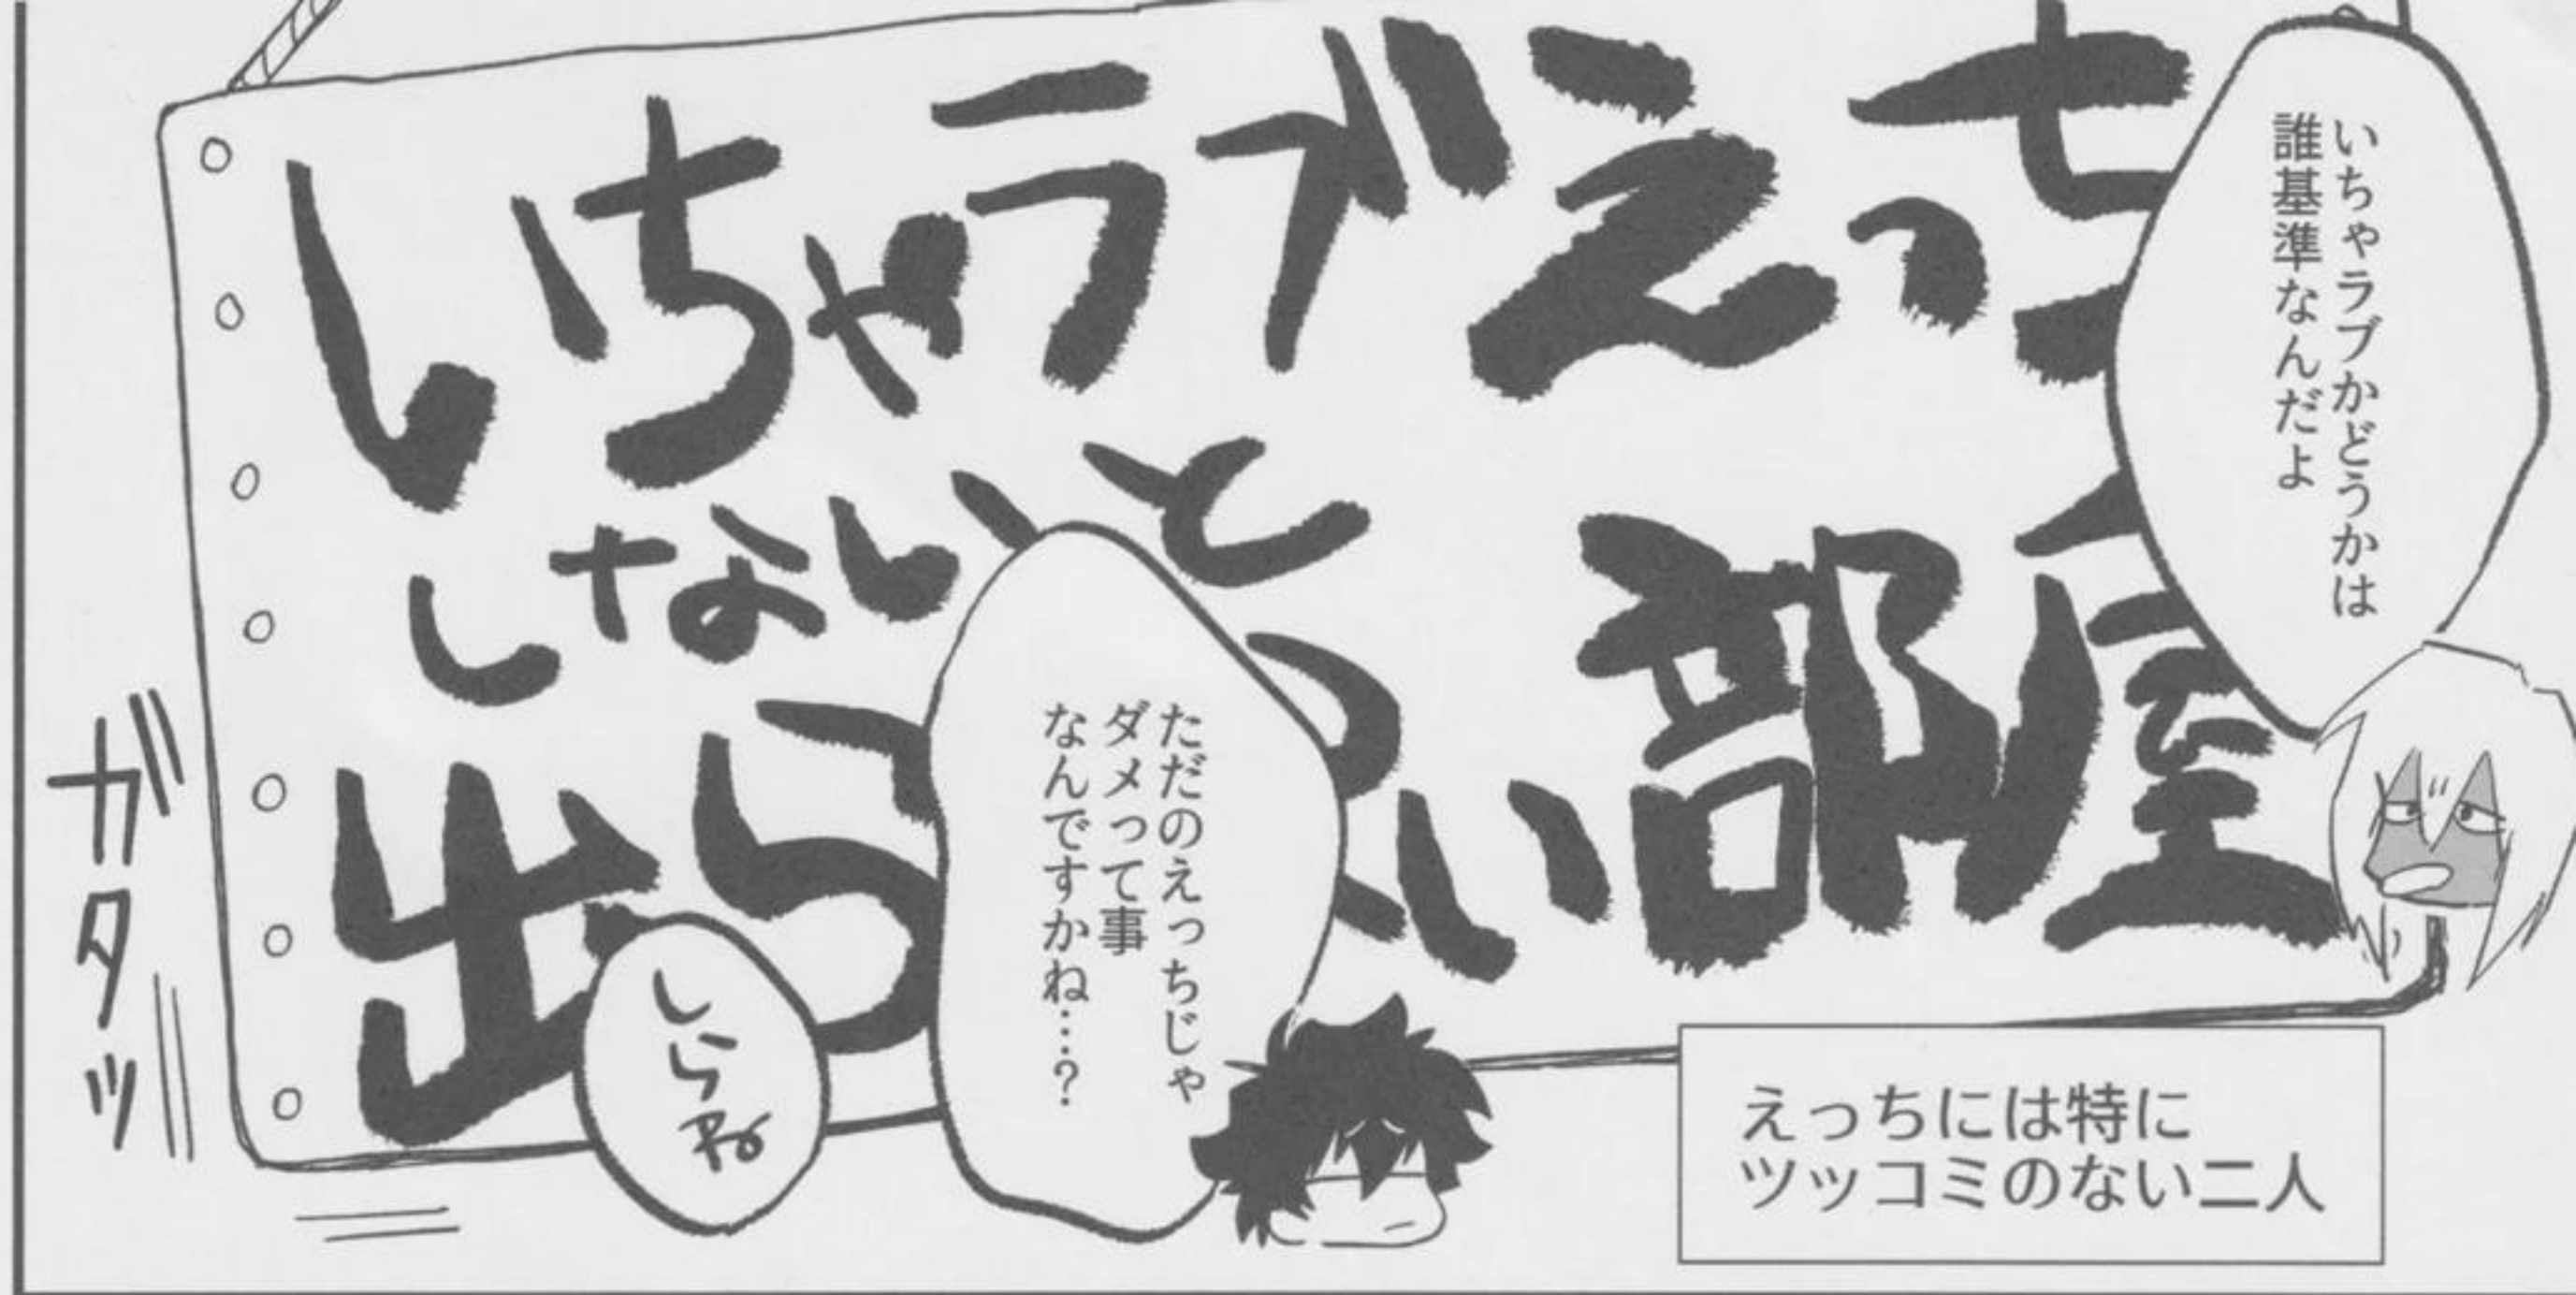 いちゃラブえっち
しないと
出られない部屋
いちゃラブかどうかは
誰基準なんだよ
ただのえっちじゃ
ダメって事
なんですかね…？
しらね
ガタッ
えっちには特に
ツッコミのない二人